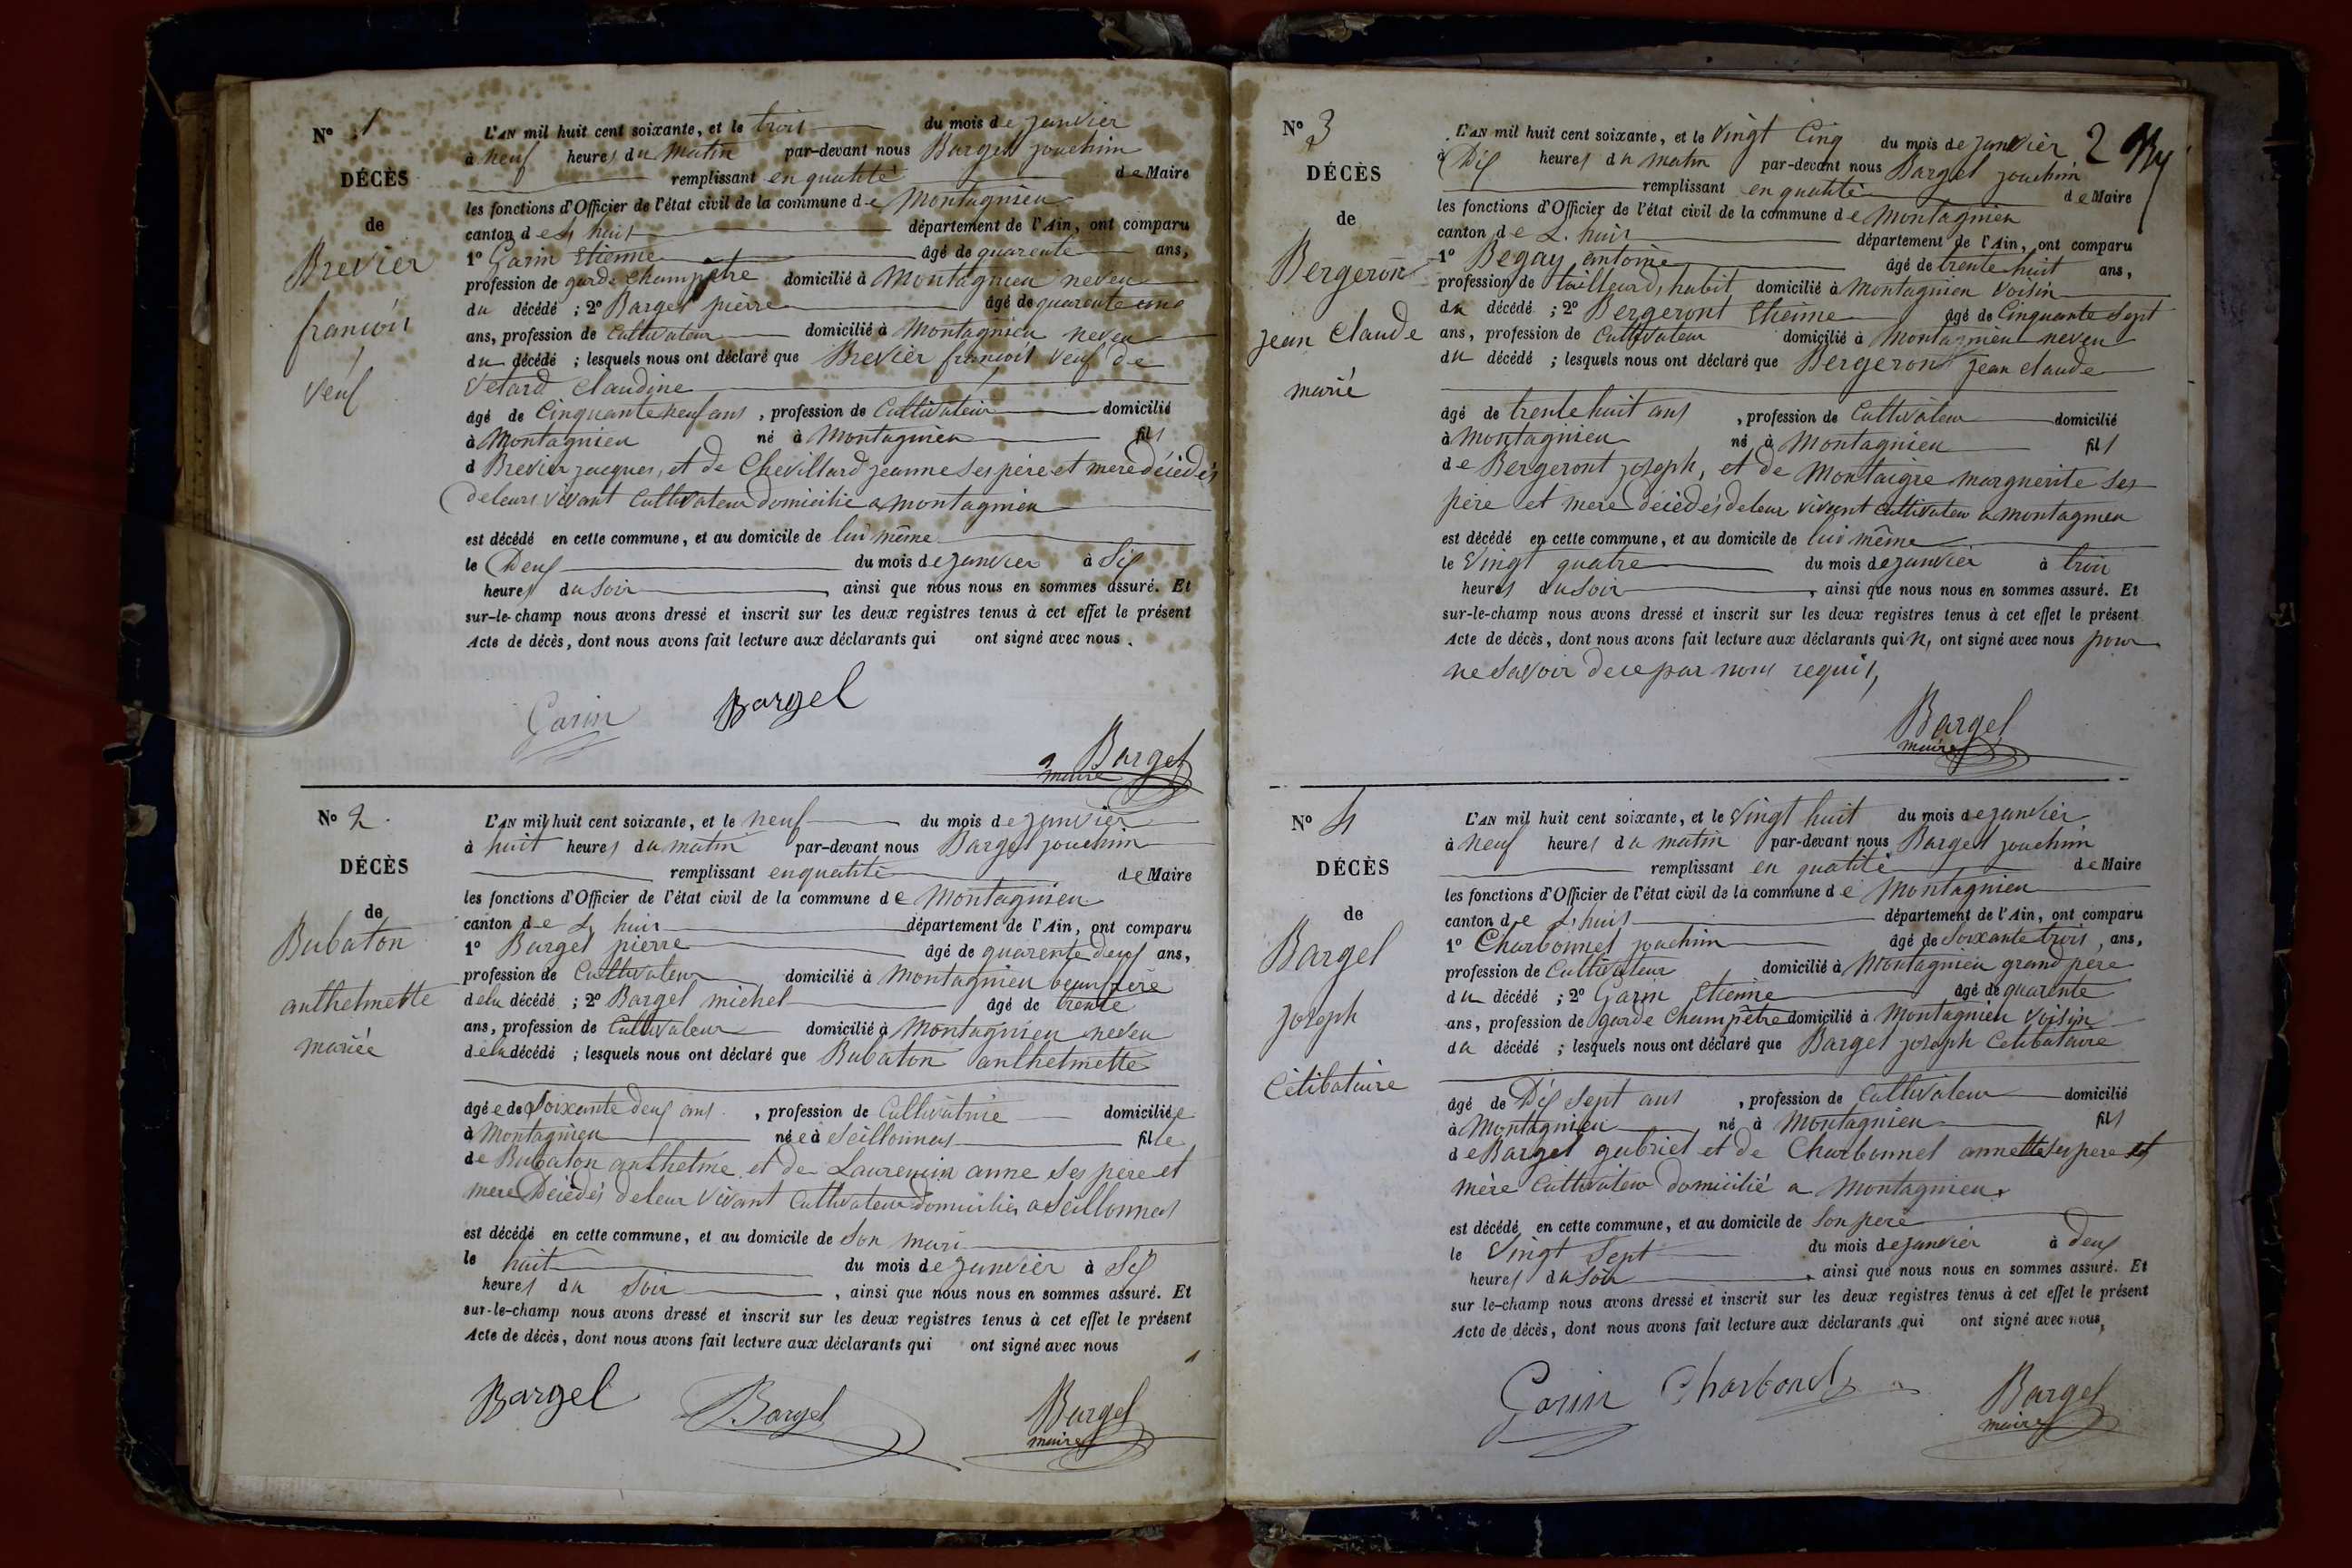 N° 1
DÉCÈS
de
Brevier
francois
veuf
L'AN mil huit cent soixante, et le trois du mois de janvier
à neuf heures du matin par-devant nous Bargel joachim
remplissant en qualité de Maire
les fonctions d'Officier de l'état civil de la commune de Montagnieu
canton de L, huis département de l'Ain, ont comparu
1° Garin Etienne âgé de quarente ans,
profession de garde Champêtre domicilié à Montagnieu neveu
du décédé ; 2° Bargel pierre âgé de quarente une
ans, profession de Cultivateur domicilié à Montagnieu neveu
du décédé ; lesquels nous ont déclaré que Brevier francois veuf de
Vetard Claudine
âgé de Cinquante neuf ans , profession de Cultivateur domicilié
à Montagnieu né à Montagnieu fils
d Brevier jacques, et de Chevillard jeanne ses père et mere décédés
deleurs vivant Cultivateur domicilie a montagnieu
est décédé en cette commune, et au domicile de lui même
le Deux du mois de janvier à Six
heures du soir , ainsi que nous nous en sommes assuré. Et
sur-le-champ nous avons dressé et inscrit sur les deux registres tenus à cet effet le présent
Acte de décès, dont nous avons fait lecture aux déclarants qui ont signé avec nous .
Garin Bargel
Bargel
maire
N° 2.
DÉCÈS
de
Bubaton
anthelmette
mariée
L'AN mil huit cent soixante, et le neuf du mois de janvier
à huit heures du matin par-devant nous Bargel joachim
remplissant en qualité de Maire
les fonctions d'Officier de l'état civil de la commune de Montagnieu
canton de L, huis département de l'Ain, ont comparu
1° Bargel pierre âgé de quarente deux ans,
profession de Cultivateur domicilié à Montagnieu beau père
dela décédé ; 2° Bargel michel âgé de trente
ans, profession de Cultivateur domicilié à Montagnieu neveu
dela décédé ; lesquels nous ont déclaré que Bubaton anthelmette
âgée de Soixante deux ans , profession de Cultivatrice domiciliée
à Montagnieu née à Seillonnas fille
de Bubaton anthelme et de Laurencin anne ses père et
mere Décédés deleur vivant Cultivateur domiciliés a Seillonnas
est décédé en cette commune, et au domicile de Son mari
le huit du mois de janvier à Six
heures du soir , ainsi que nous nous en sommes assuré. Et
sur-le-champ nous avons dressé et inscrit sur les deux registres tenus à cet effet le présent
Acte de décès, dont nous avons fait lecture aux déclarants qui ont signé avec nous
Bargel Bargel Bargel
maire
2
N° 3
DÉCÈS
de
Bergeron
jean Claude
marié
L'AN mil huit cent soixante, et le Vingt Cinq du mois de janvier
à Dix heures du matin par-devant nous Bargel joachim
remplissant en qualité de Maire
les fonctions d'Officier de l'état civil de la commune de Montagnieu
canton de L. huis département de l'Ain, ont comparu
1° Begay antoine âgé de trente huit ans,
profession de tailleur d, habit domicilié à Montagnieu Voisin
du décédé ; 2° Bergeront Etienne âgé de Cinquante Sept
ans, profession de Cultivateur domicilié à Montagnieu neveu
du décédé ; lesquels nous ont déclaré que Bergeront jean claude
âgé de trente huit ans , profession de Cultivateur domicilié
à Montagnieu né à Montagnieu fils
de Bergeront joseph, et de Montaigre marguerite ses
père et mere décédés deleur vivant Cultivateur a montagnieu
est décédé en cette commune, et au domicile de lui même
le Vingt quatre du mois de janvier à trois
heures du soir , ainsi que nous nous en sommes assuré. Et
sur-le-champ nous avons dressé et inscrit sur les deux registres tenus à cet effet le présent
Acte de décès, dont nous avons fait lecture aux déclarants qui n, ont signé avec nous pour
ne savoir dece par nous requis,
Bargel
maire
N° 4
DÉCÈS
de
Bargel
joseph
Célibataire
L'AN mil huit cent soixante, et le Vingt huit du mois de janvier
à neuf heures du matin par-devant nous Bargel joachim
remplissant en qualité de Maire
les fonctions d'Officier de l'état civil de la commune de Montagnieu
canton de L, huis département de l'Ain, ont comparu
1° Charbonnel joachim âgé de Soixante trois , ans,
profession de Cultivateur domicilié à Montagnieu grand père
du décédé ; 2° Garin Etienne âgé de quarente
ans, profession de garde Champêtre domicilié à Montagnieu Voisin
du décédé ; lesquels nous ont déclaré que Bargel joseph Celibataire
âgé de Dix Sept ans , profession de Cultivateur domicilié
à Montagnieu né à Montagnieu fils
de Bargel gabriel et de Charbonnel annette ses pere et
mère Cultivateur domicilié a Montagnieu.
est décédé en cette commune, et au domicile de Son père
le Vingt Sept du mois de janvier à deux
heures du Soir , ainsi que nous nous en sommes assuré. Et
sur le-champ nous avons dressé et inscrit sur les deux registres tenus à cet effet le présent
Acte de décès, dont nous avons fait lecture aux déclarants qui ont signé avec nous,
Garin Charbonel Bargel
maire